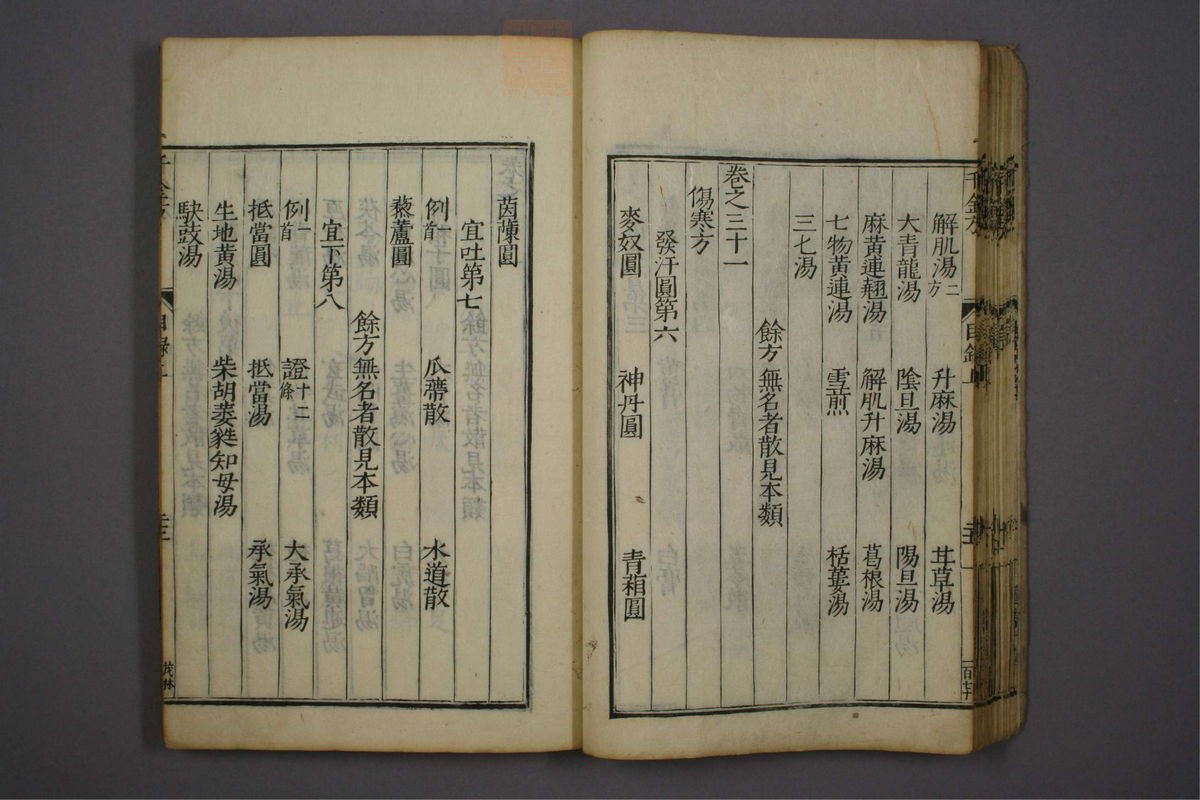 解肌湯二方 升麻湯 茸草湯
大青龍湯 陰旦湯 陽旦湯
麻黃連翹湯 解肌升麻湯 葛根湯
七物黃連湯 雪煎 栝蔞湯
三匕湯
餘方無名者散見本類
卷之三十一
傷寒方
發汗圓第六
麥奴圓 神丹圓 青葙圓
茵蔯圓
宜吐第七
例一首 瓜蔕散 水道散
藜蘆圓
餘方無名者散見本類
宜下第八
例一首 證十二條 大承氣湯
抵當圓 抵當湯 承氣湯
生地黃湯 柴胡蔞蕤知母湯
䜴鼓湯
茂林